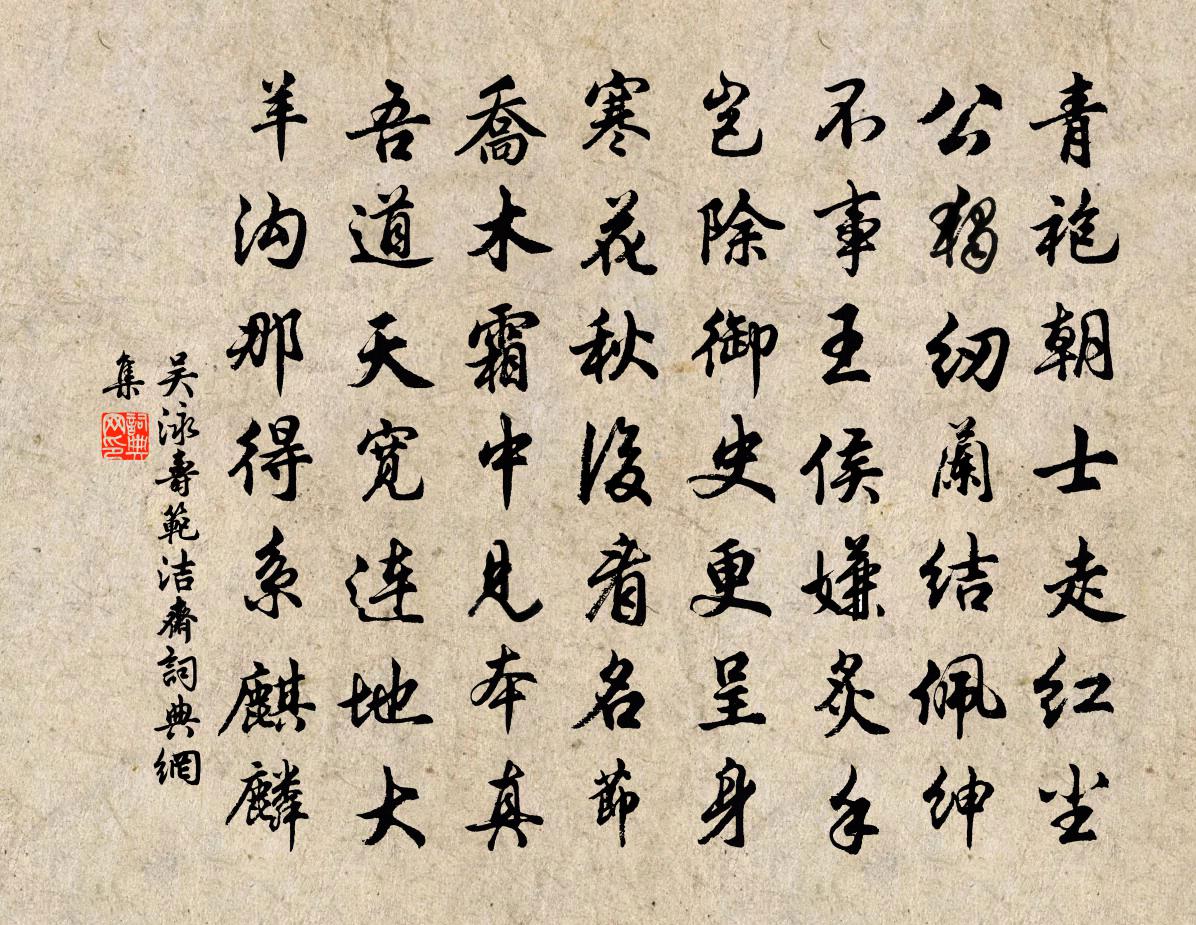 青袍朝士走红尘
公独纫蘭结佩绅
不事王侯嫌炙手
岂除御史更呈身
寒花秋後看名節
喬木霜中見本真
吾道天宽连地大
羊沟那得系麒麟
吴泳壽範洁齋詞典網
集
詞典
网印